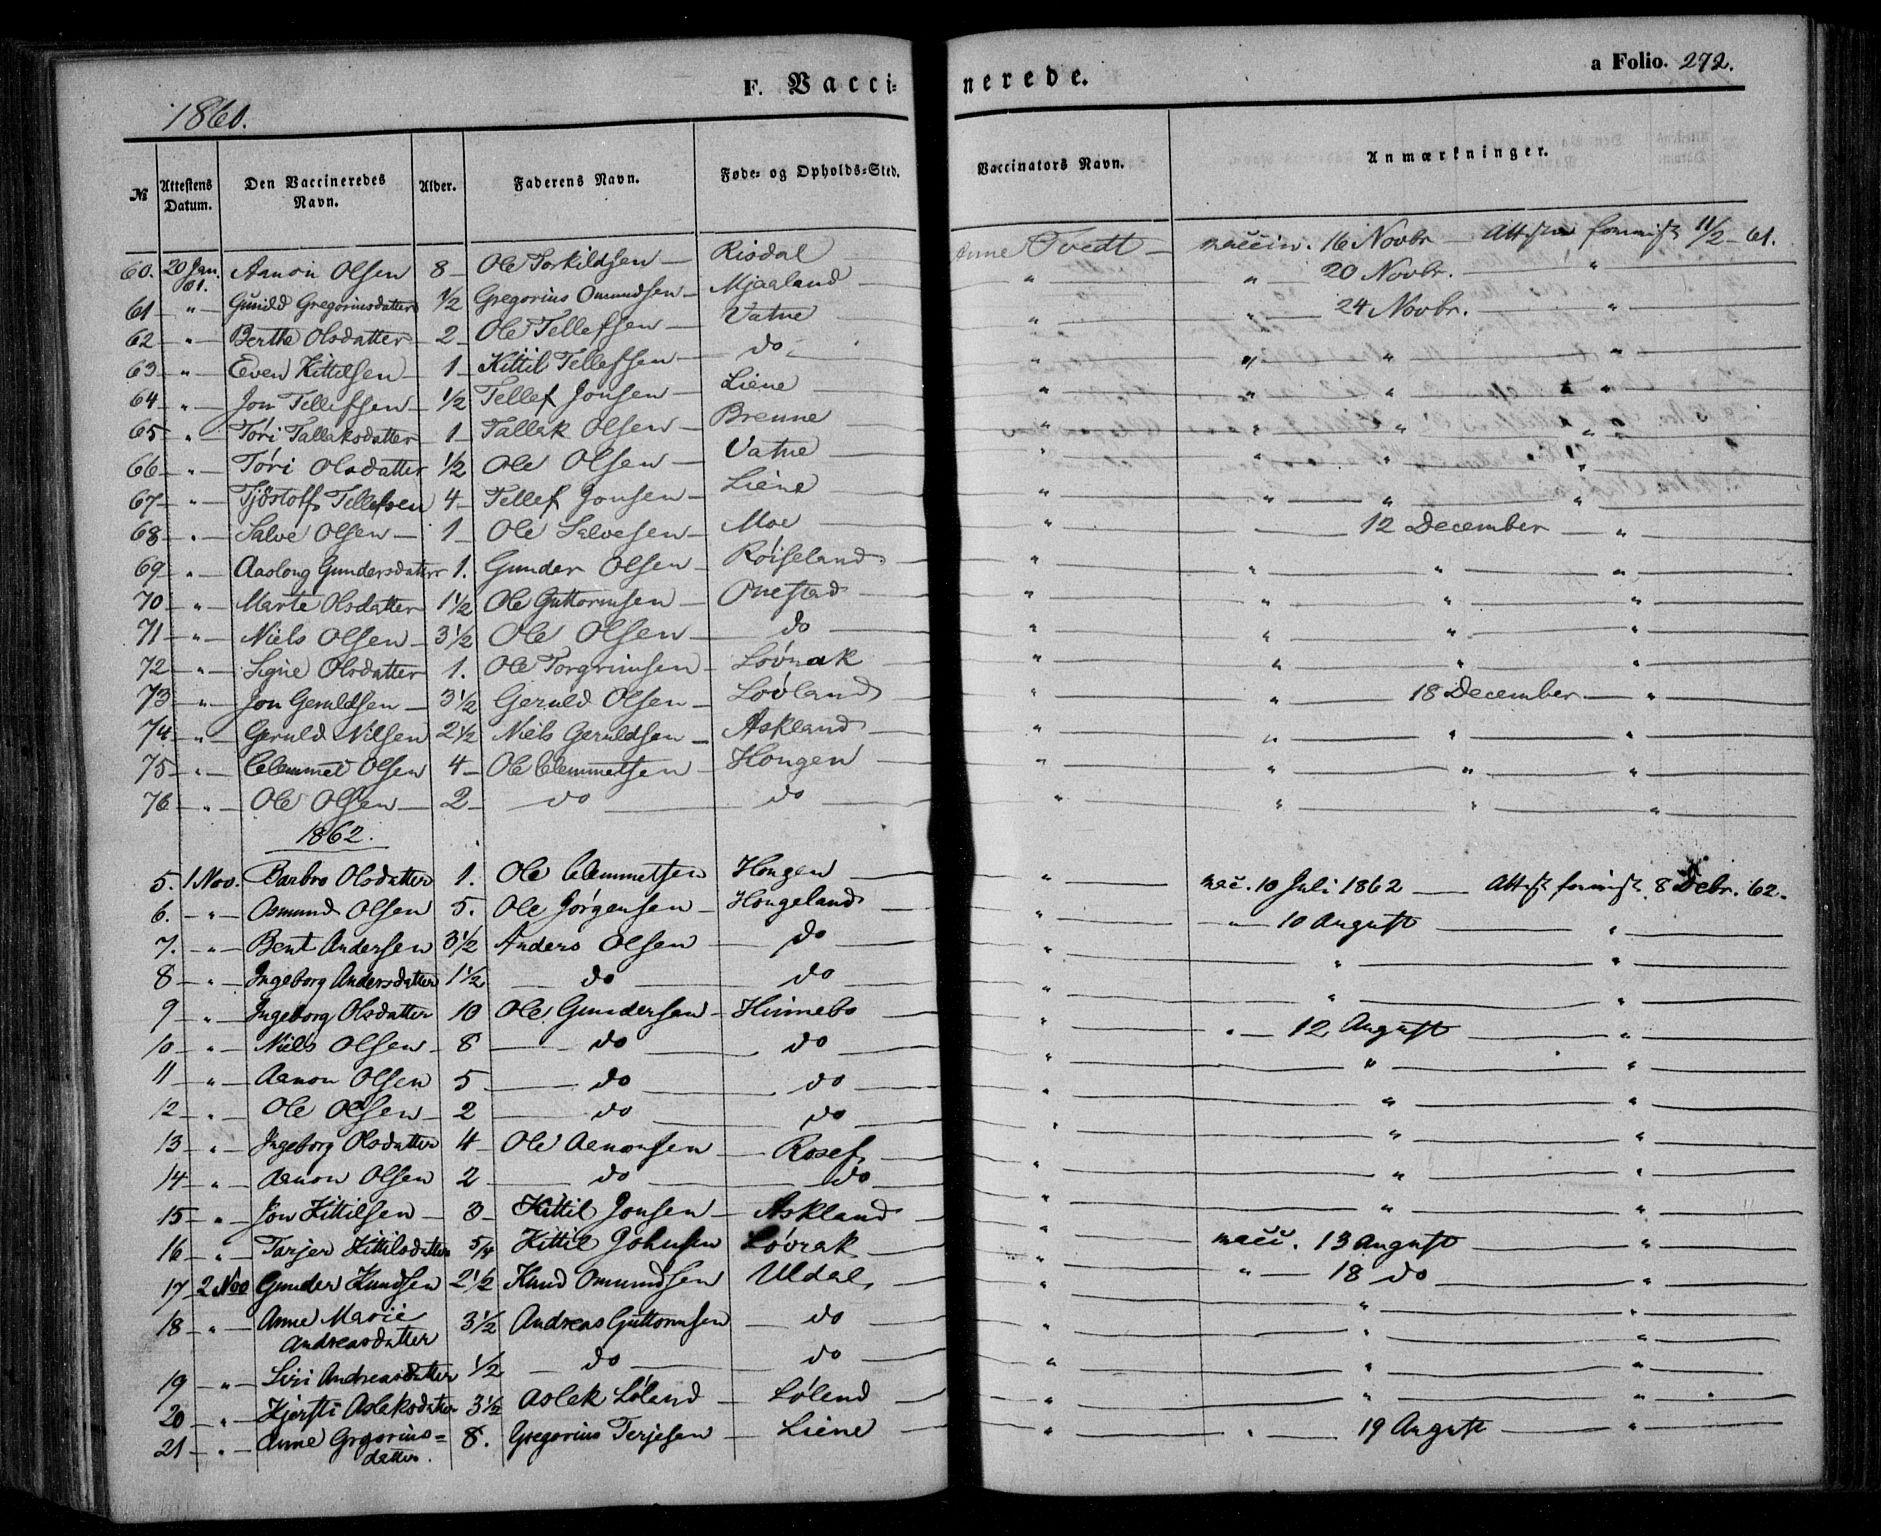 1860.
F. Vaccinerede.
a Folio. 272.
№ | Attestens Datum. | Den Vaccineredes Navn. | Alder. | Faderens Navn. | Føde- og Opholds-Sted. | Vaccinators Navn. | Anmærkninger.
60. | 20 Jan. 61. | Aanon Olsen | 8 | Ole Torkildsen | Risdal | Anne Tvedt | vaccin. 16 Novbr. | 11/2-61.
61 | " | Gunild Gregoriusdatter | ½ | Gregorius Omundsen | Mjaaland | " | " 20 Novbr. | "
62 | " | Berthe Olsdatter | 2 | Ole Tellefsen | Vatne | " | " 24 Novbr. | "
63 | " | Even Kittilsen | 1 | Kittil Tellefsen | do | " | " " | "
64 | " | Jon Tellefsen | ½ | Tellef Jonsen | Liene | " | " " | "
65 | " | Tori Tallaksdatter | 1 | Tallak Olsen | Brenne | " | " " | "
66 | " | Tori Olsdatter | ½ | Ole Olsen | Vatne | " | " " | "
67 | " | Tjöstolf Tellefsen | 4 | Tellef Jonsen | Liene | " | " " | "
68 | " | Salve Olsen | 1 | Ole Salvesen | Moe | " | 12 December | "
69 | " | Aaslong Gundersdatter | 1. | Gunder Olsen | Röiseland | " | " " | "
70 | " | Marte Olsdatter | 1½ | Ole Guttormsen | Onestad | " | " " | "
71 | " | Niels Olsen | 3½ | Ole Olsen | do | " | " " | "
72 | " | Signe Olsdatter | 1. | Ole Torgrimsen | Lövrak | " | " " | "
73 | " | Jon Geruldsen | 3½ | Geruld Olsen | Lövland | " | " 18 December | "
74 | " | Geruld Nilsen | 2½ | Niels Geruldsen | Askland | " | " " | "
75 | " | Clemmet Olsen | 4 | Ole Clemmetsen | Hongen | " | " " | "
76 | " | Ole Olsen | 2 | do | do | " | " " | "
1862.
5. | 1 Nov. | Barbro Olsdatter | 1. | Ole Clemmetsen | Hongen | " | vac. 10 Juli 1862 | 8 Debr. '62.
6. | " | Osmund Olsen | 5. | Ole Jörgensen | Hongeland | " | " 10 August | "
7. | " | Bent Andersen | 3½ | Anders Olsen | do | " | " | "
8 | " | Ingeborg Andersdatter | 1½ | do | do | " | " | "
9 | " | Ingeborg Olsdatter | 10 | Ole Gundersen | Hinnebo | " | " 12 August | "
10 | " | Niels Olsen | 8 | do | do | " | " | "
11 | " | Aanon Olsen | 5 | do | do | " | " | "
12 | " | Ole Olsen | 2 | do | do | " | " | "
13 | " | Ingeborg Olsdatter | 4 | Ole Aanonsen | Rosef. | " | " | "
14 | " | Aanon Olsen | 2 | do | do | " | " | "
15 | " | Jon Kittilsen | 3 | Kittil Jonsen | Askland | " | vacc. 13 August | "
16 | " | Tarjer Kittilsdatter | 5/4 | Kittil Johnsen | Lövrak | " | " 18 do | "
17 | 2 Nov | Gunder Knudsen | 2½ | Knud Omundsen | Uldal, | " | " | "
18 | " | Anne Marie Andreasdatter | 3½ | Andreas Guttormsen | do | " | " | "
19 | " | Siri Andreasdatter | ½ | do | do | " | " | "
20 | " | Kjersti Aslaksdatter | 3½ | Aslak Löland | Lölend | " | " | "
21 | " | Anne Grgorius=datter. | 8. | Gregorius Terjesen | Liene | " | " 19 August | "